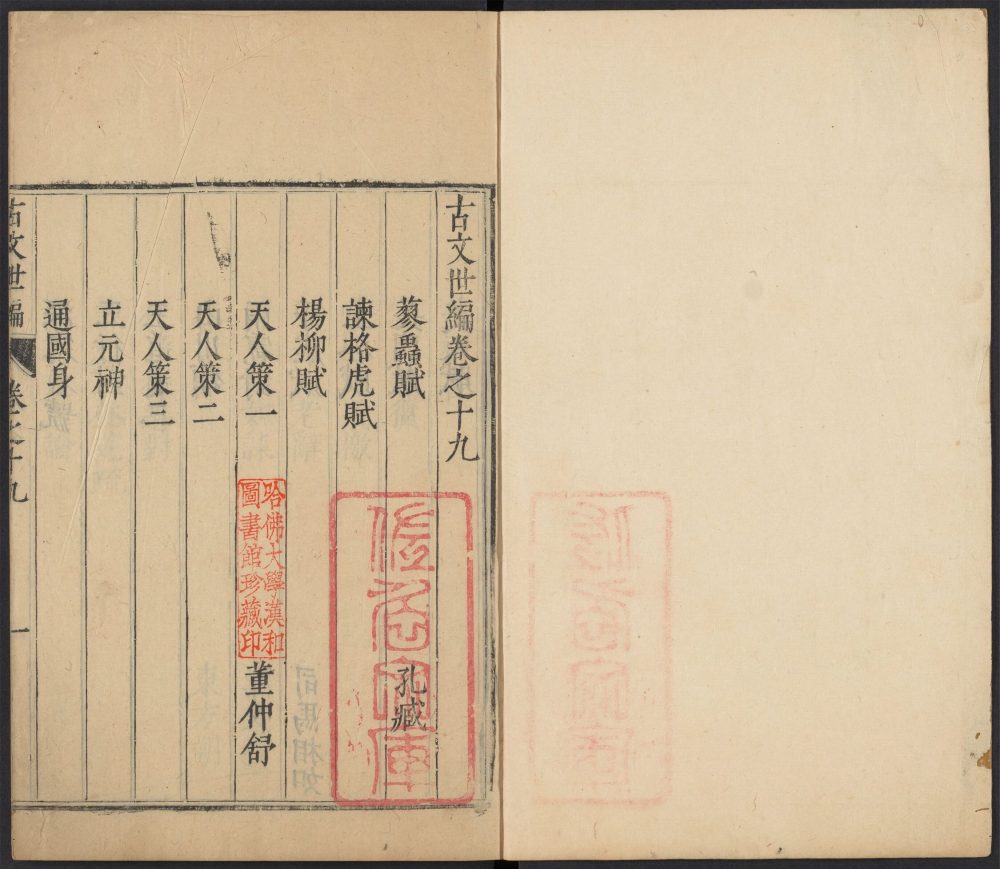 古文世編卷之十九
蓼蟲賦 孔臧
諫格虎賦
楊柳賦
天人策一 董仲舒
天人策二
天人策三
立元神
通國身
古文世編 卷之十九 一
佐伯文庫
哈佛大學漢和
圖書館珍藏印